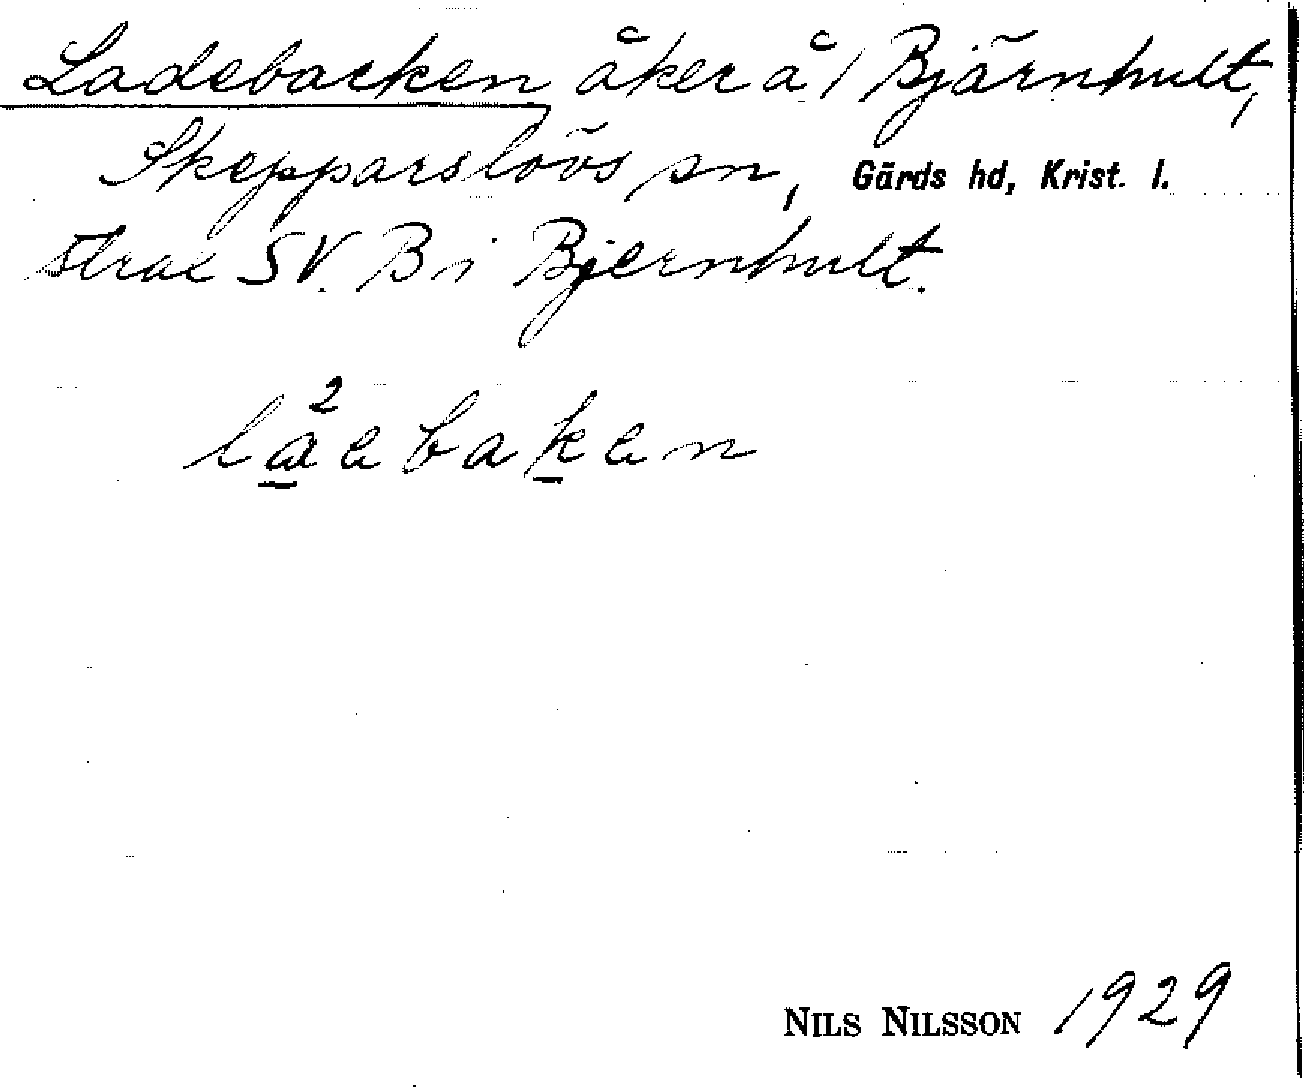 Ladebacken åker å / Bjärnhult,
Skepparslövs sn, Gärds hd, Krist. l.
strax SV. B i Bjernhult.
lα̱²ebaḵen
NILS NILSSON 1929